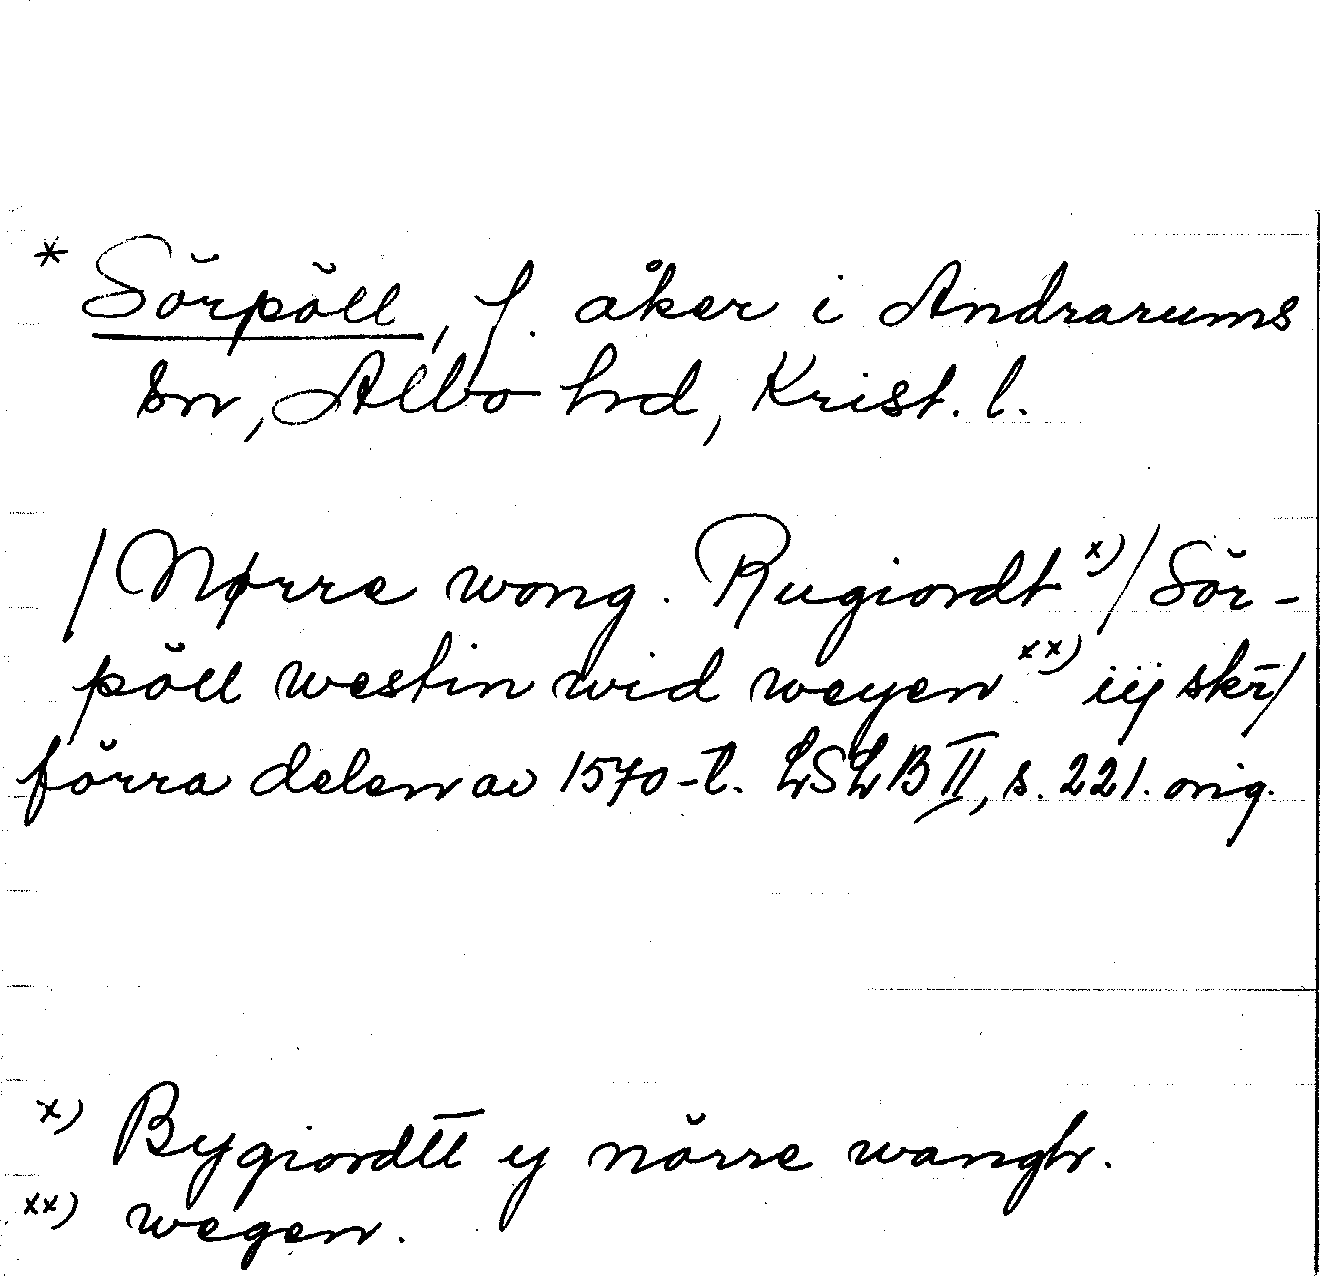 * Sörpöll, f. åker i Andrarums
sn, Albo hd, Krist. l.
/Nørre wong. Rugiordt x)/ Sör-
pöll westin wid weyen xx) iij skr̄/
förra delen av 1570-t. LSLB II, s. 221. orig.
x) Bygiordtt y nörre wangh.
xx) wegen.